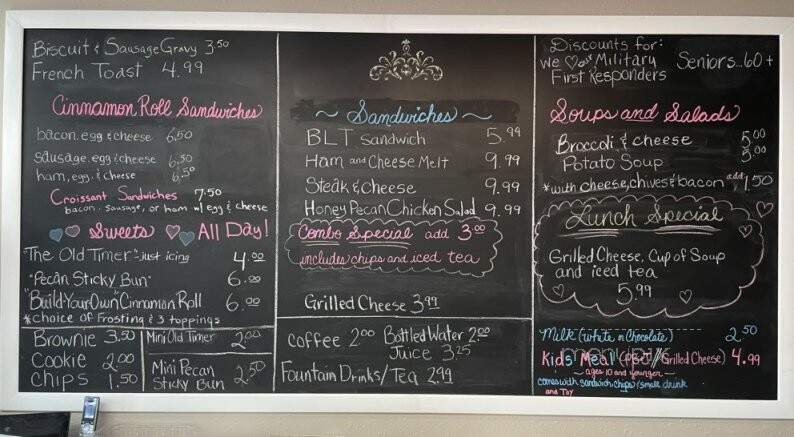 Biscuit & Sausage Gravy 3.50
French Toast 4.99
Cinnamon Roll Sandwiches
bacon, egg & cheese 6.50
sausage, egg & cheese 6.50
ham, egg, & cheese 6.50
Croissant Sandwiches 7.50
bacon, sausage, or ham w/ egg & cheese
Sweets All Day!
"The Old Timer" - just icing 4.00
"Pecan Sticky Bun" 6.00
"Build-Your-Own" Cinnamon Roll 6.00
*choice of Frosting & 3 toppings
Brownie 3.50
Cookie 2.00
Chips 1.50
Mini Old Timer 2.00
Mini Pecan
Sticky Bun 2.50
~ Sandwiches ~
BLT Sandwich 5.99
Ham and Cheese Melt 9.99
Steak & cheese 9.99
Honey Pecan Chicken Salad 9.99
Combo Special add 3.00
includes chips and iced tea
Grilled Cheese 3.99
Coffee 2.00 Bottled Water 2.00
Juice 3.25
Fountain Drinks/Tea 2.99
Discounts for:
We our Military Seniors..60+
First Responders
Soups and Salads
Broccoli & cheese 5.00
Potato Soup 5.00
*with cheese, chives & bacon add 1.50
Lunch Special
Grilled Cheese, Cup of Soup
and iced tea
5.99
Milk (White n Chocolate) 2.50
Kids Meal (PB&J/Grilled Cheese) 4.99
~ ages 10 and younger ~
comes with sandwich, chips, small drink
and Toy